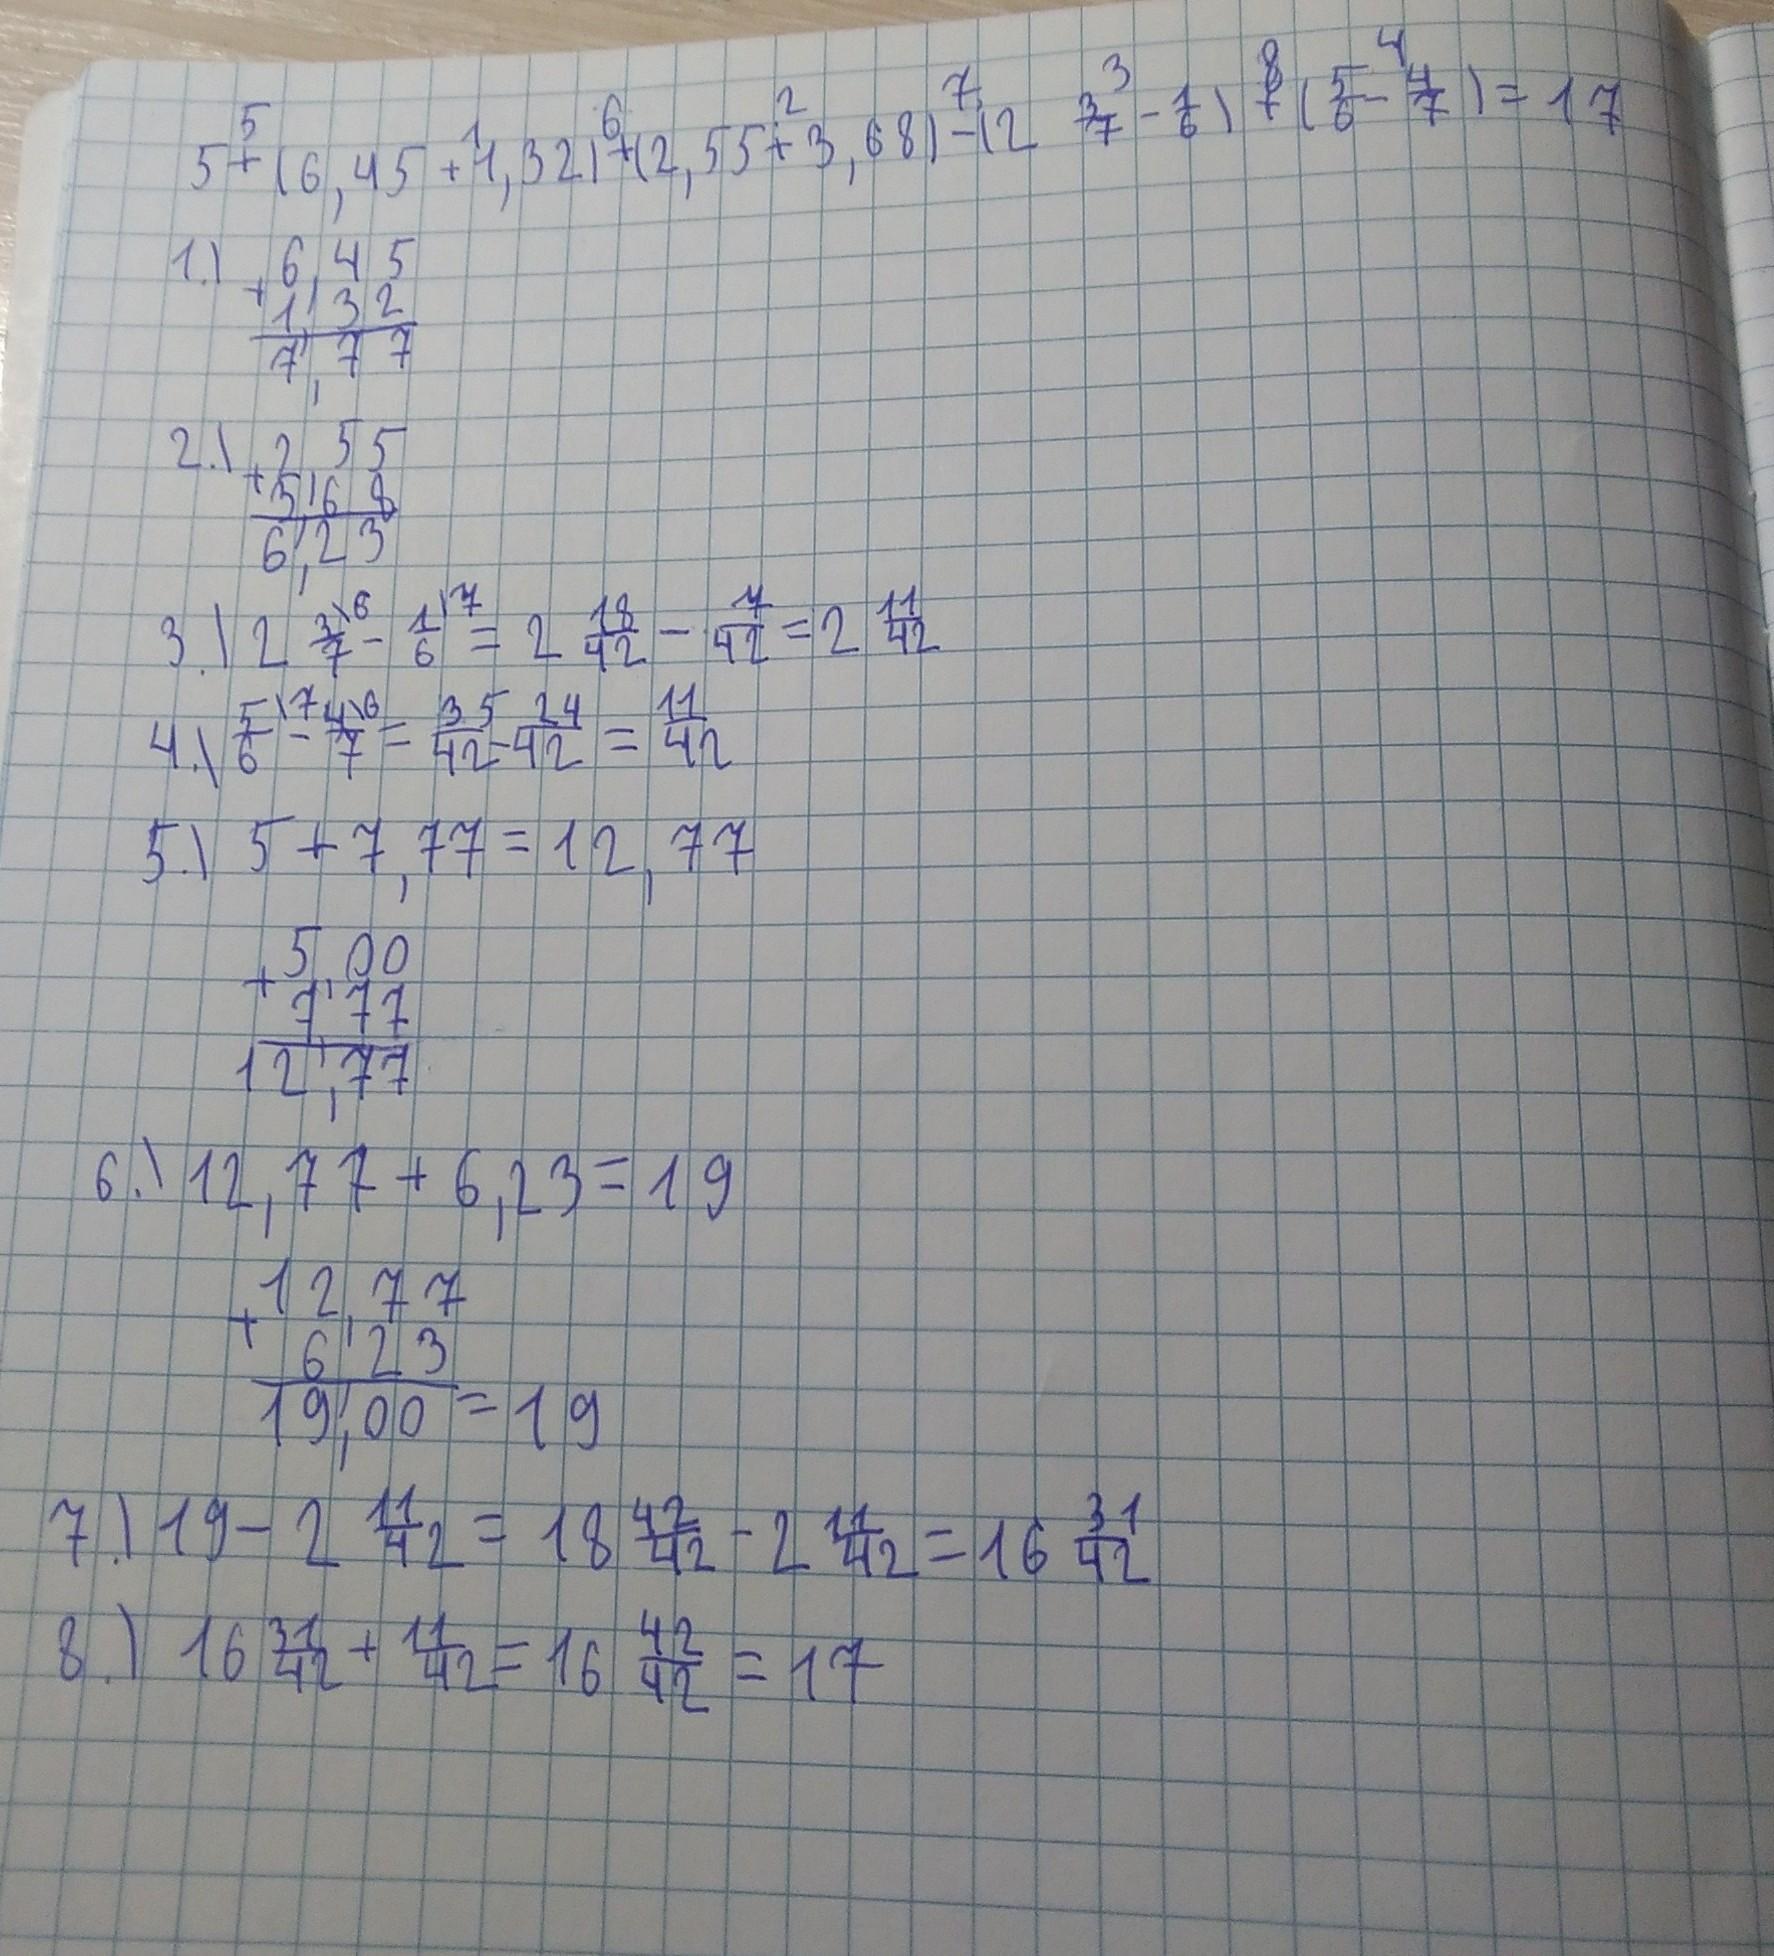 5 + (6,45 + 1,32) + (2,55 + 3,68) - (2 3/7 - 1/6) + (5/6 - 4/7) = 17
5 1 6 2 7 3 8 4
1.) + 6,45
1,32
7,77
2.) + 2,55
3,68
6,23
3.) 2 3/7\6 - 1/6\7 = 2 18/42 - 7/42 = 2 11/42
4.) 5/6\7 - 4/7\6 = 35/42 - 24/42 = 11/42
5.) 5 + 7,77 = 12,77
+ 5,00
7,77
12,77
6.) 12,77 + 6,23 = 19
+ 12,77
6,23
19,00 = 19
7.) 19 - 2 11/42 = 18 42/42 - 2 11/42 = 16 31/42
8.) 16 31/42 + 11/42 = 16 42/42 = 17